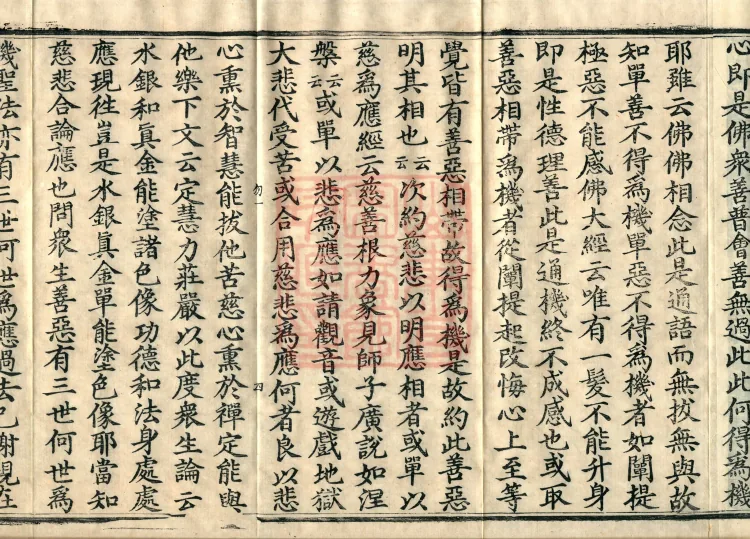 心即是佛衆善普會善無過此此何得爲機
耶雖云佛佛相念此是通語而無拔無與故
知單善不得爲機單惡不得爲機者如闡提
極惡不能感佛大經云唯有一髮不能升身
即是性德理善此是通機終不成感也或取
善惡相帶爲機者從闡提起改悔心上至等
覺皆有善惡相帶故得爲機是故約此善惡
明其相也云云次約慈悲以明應相者或單以
慈爲應經云慈善根力象見師子廣說如涅
槃云云或單以悲爲應如請觀音或遊戲地獄
大悲代受苦或合用慈悲爲應何者良以悲
勿一 四
心熏於智慧能拔他苦慈心熏於禪定能與
他樂下文云定慧力莊嚴以此度衆生論云
水銀和眞金能塗諸色像功德和法身處處
應現往豈是水銀眞金單能塗色像耶當知
慈悲合論應也問衆生善惡有三世何世爲
機聖法亦有三世何世爲應過去已謝現在